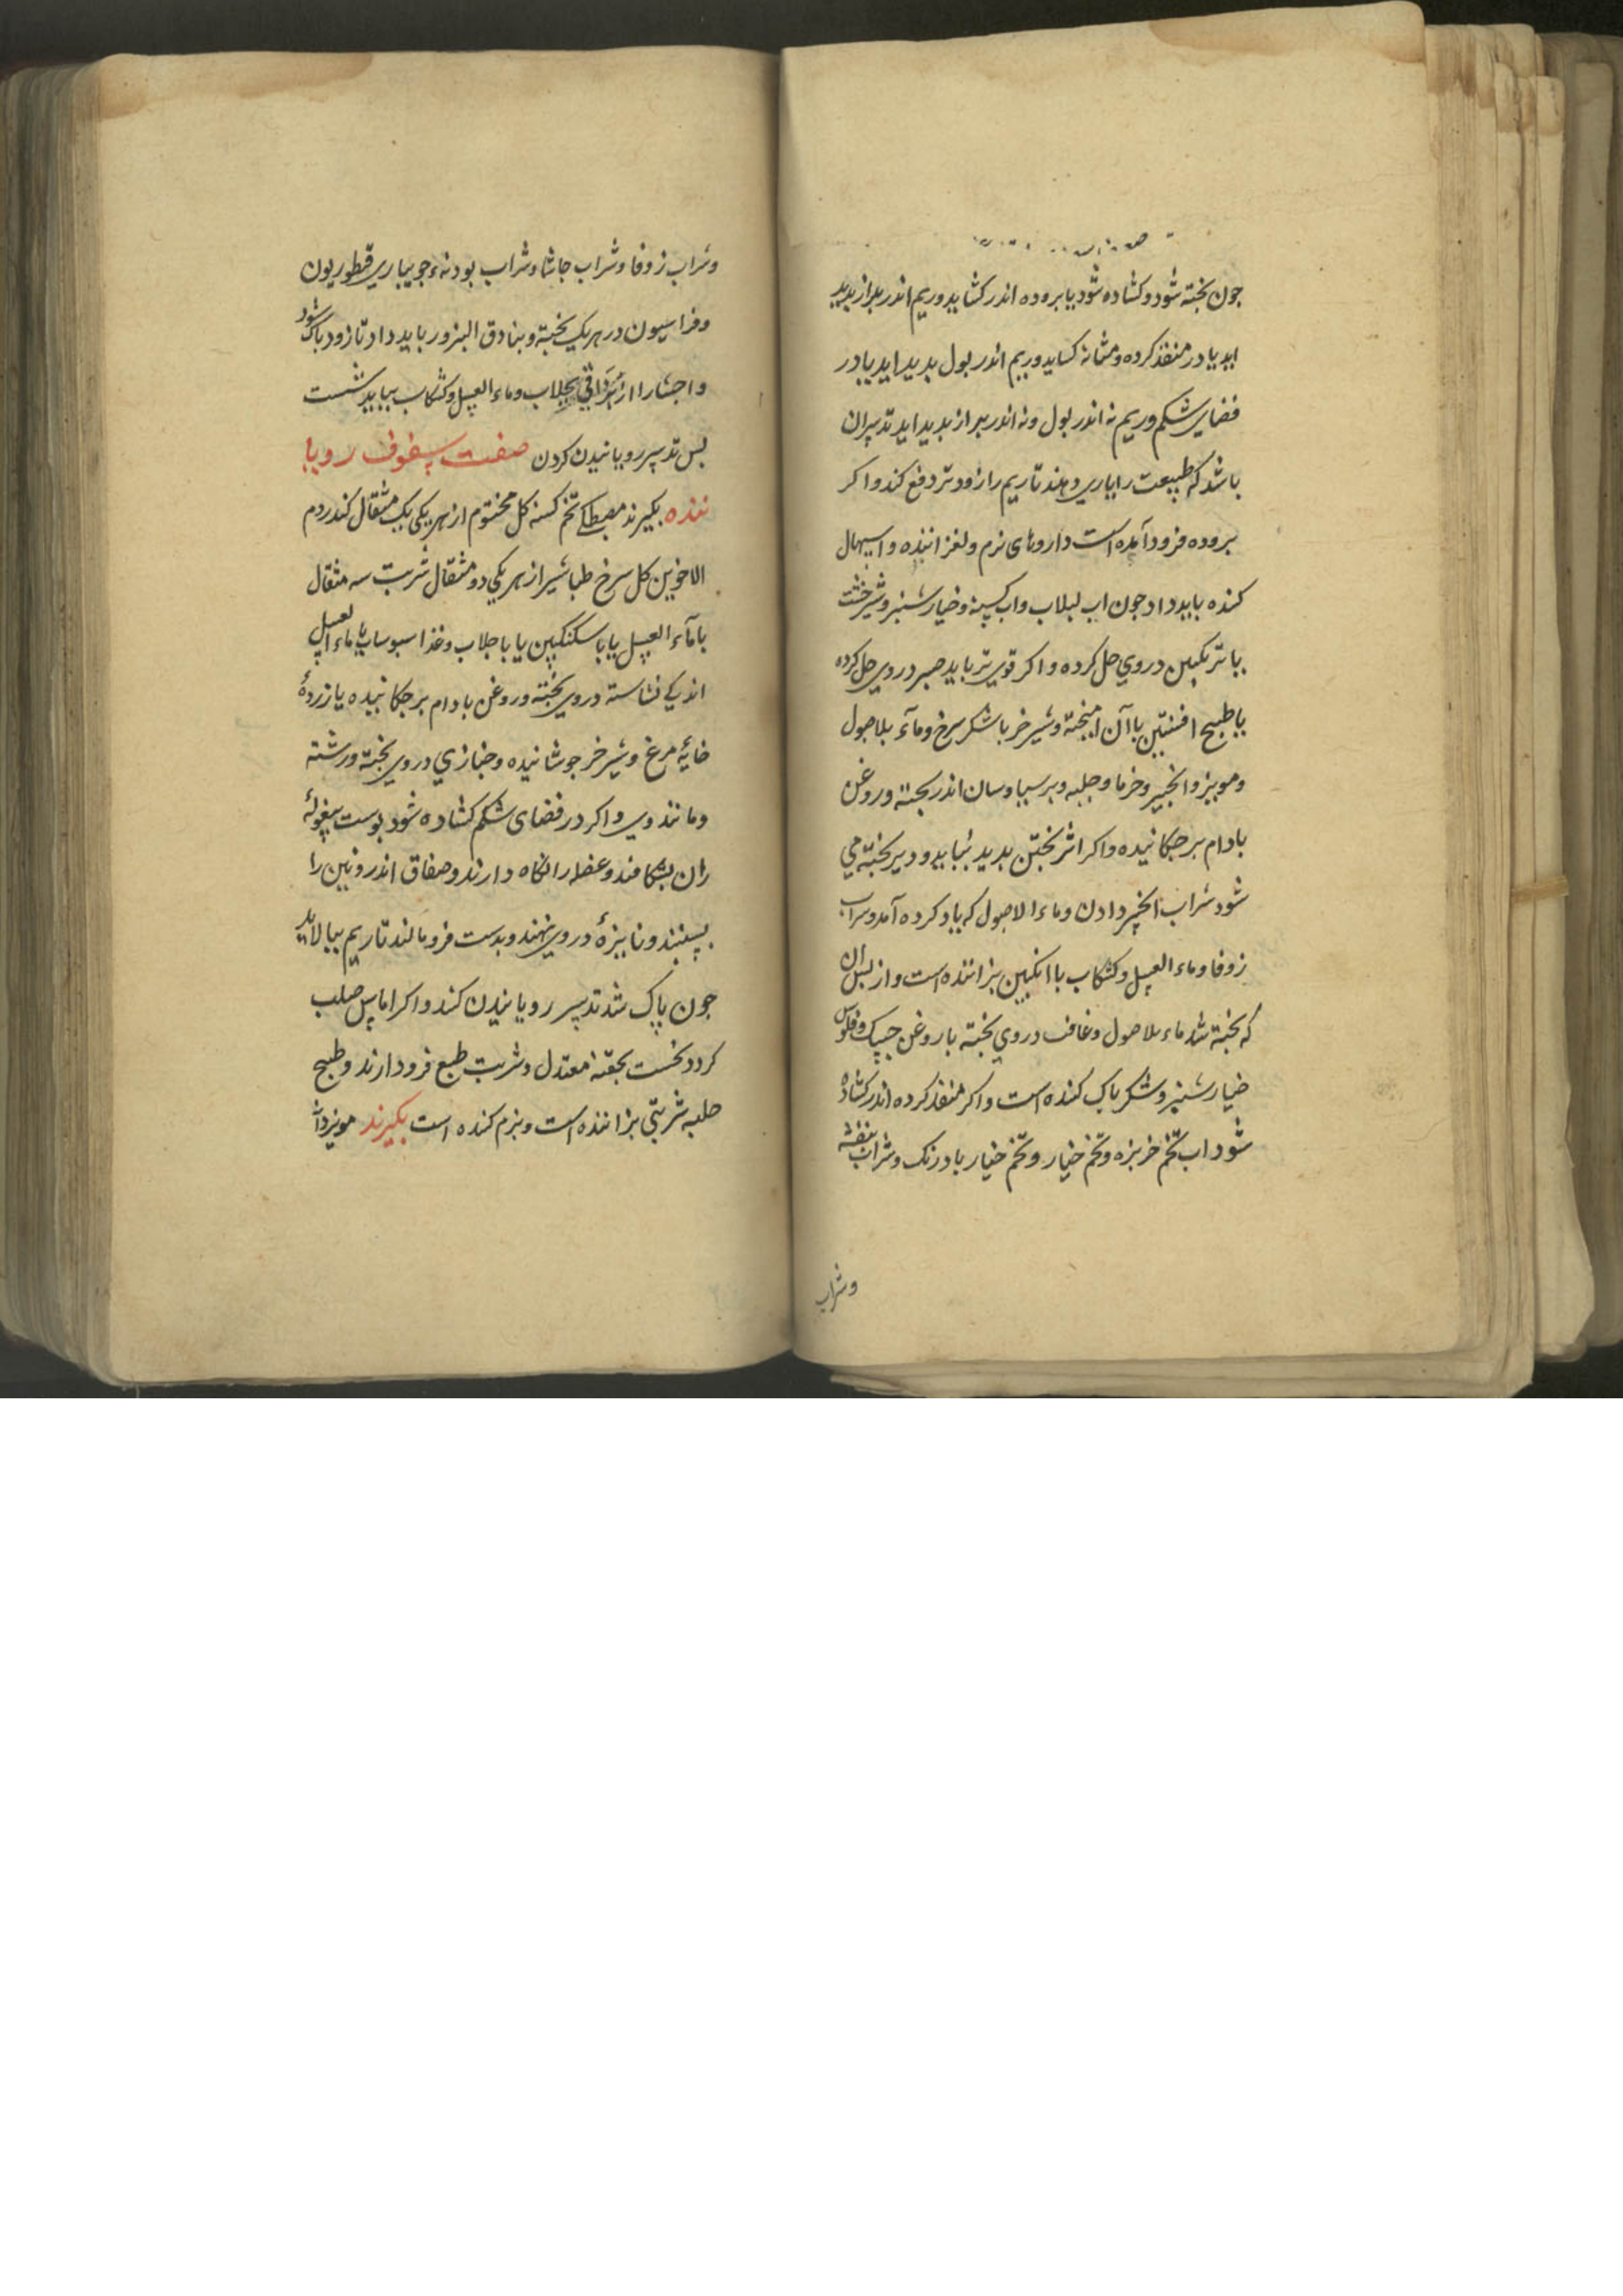 جون بخته شود و کشاده شود یا بروده اندر کشاید و ریم اندر براز بدید
اید یا در منفذ کرده و مثانه کساید و ریم اندر بول بدید اید یا در
فضای شکم و ریم نه اندر بول و نه اندر براز بدید اید تدبیر ان
باشد که طبیعت را یاری دهند تا ریم را زودتر دفع کند و اکر
بروده فرود آمده است داروهای نرم و لغزاننده و اسهال
کننده باید داد جون اب لبلاب و اب کسنه و خیارشنبر و شیرخشت
با ترنکبین در وی حل کرده و اکر قوی تر باید صبر در وی حل کرده
با طبیح افسنتین با آن امیخته و شیر خر با شکر سرخ و مآء بلاصول
و مویز و انجیر و خرما و حلبه و برسیاوسان اندر بخته و روغن
بادام برجکانیده و اکر اثر بختن بدید نیاید و دیر بخته می
شود شراب انجیر دادن و ماء الاصول که یاد کرده آمد و سراب
زوفا و ماء العسل و کشکاب با انکبین بزاننده است و از بس ان
که بخته شد ماء بلاصول و غافت در وی بخته با روغن و فلوس
خیارشنبر و شکر باک کننده است و اکر منفذ کرده اندر کشاده
شود اب تخم خربزه و تخم خیار و تخم خیار بادرنک و شراب بنفشه
وشراب
وشراب زوفا و شراب حاشا و شراب بودنهٔ جویباری قنطوریون
و فراسیون در هر یک بخته و بنادق البزور باید داد تا زود باک شود
و احشا را از بجلاب و ماء العسل و کشکاب بیاید شست
بس تدبیر رویانیدن کردن صفت سفوف رویا
ننده بکیرند مصطکی تخم کسنه کل مختوم از هر یکی یک مثقال کندر دم
الاخوین کل سرخ طباشیر از هر یکی دو مثقال شربت سه مثقال
با مآء العسل یا با سکنکبین یا با جلاب و غذا سبوساب با ماء العسل
اندکی نشاسته در وی بخته و روغن بادام برجکانیده یا زردهٔ
خایهٔ مرغ و شیر خر جوشانیده و خبازی در وی بخته و رشته
و مانند وی و اکر در فضای شکم کشاده شود بوست بیغولهٔ
ران بشکافند و عضله را نکاه دارند و صفاق اندرونین را
بسنبند و نایزهٔ در وی نهند و بدست فرو مالند تا ریم ببالاید
جون پاک شد تدبیر رویانیدن کند و اکر اماس صلب
کردد نخست بحقنهٔ معتدل و شربت طبع فرود ارند و طبیح
حلبه شربتی بزاننده است و نرم کننده است بکیرند مویز دانه